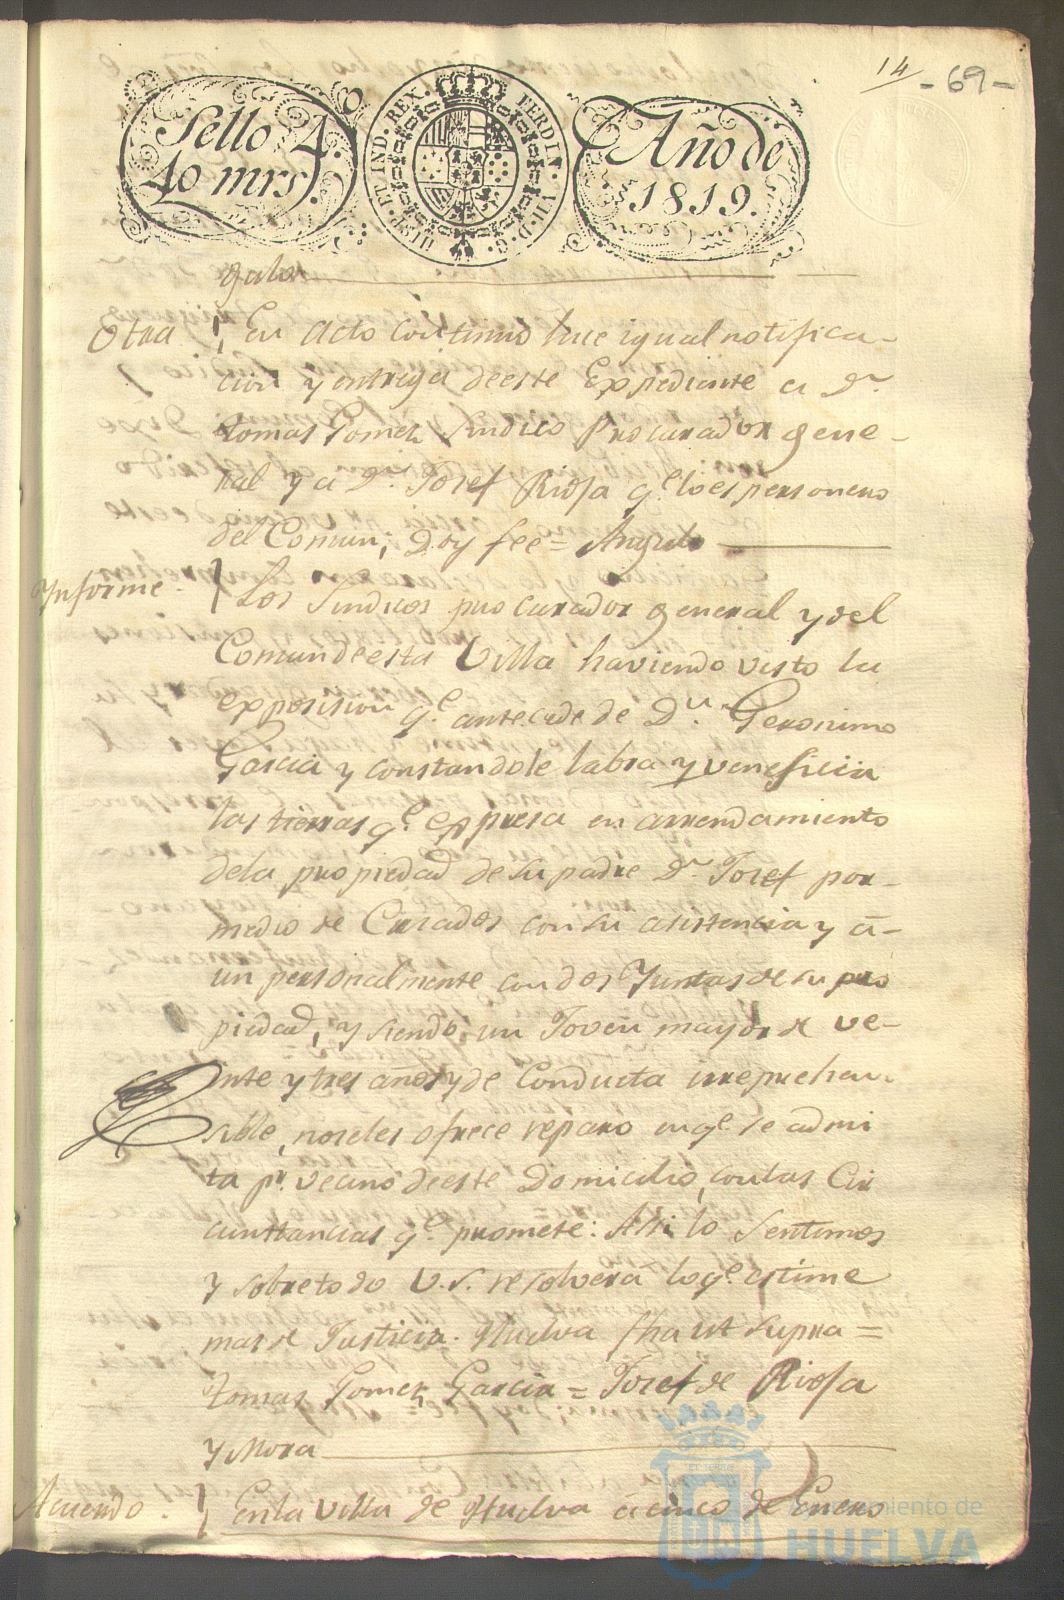 14
-69-
Sello 4.
40 mrs.
HISP. ET IND. REX. FERDIN. VII. D. G.
Año de
1819.
gulo
Otra En acto continuo hice igual notifica-
cion y entrega de este Expediente a Dn.
tomas Gomez Sindico Procurador gene-
ral y a Dn. Josef Rioja qe. lo es personero
del Comun; Doy fee= Angulo
Ynforme. Los Sindicos procurador general y del
Comun de esta Villa haviendo visto la
exposision qe. antecede de Dn. Geronimo
Garcia y constandole labra y veneficia
las tierras qe. expresa en arrendamiento
dela propiedad de su padre Dn. Josef por-
medio de Criados con su asistencia y a-
un personalmente con dos Yuntas de su pro
piedad, y siendo un Joven mayor de ve-
inte y tres años y de Conducta irreprehen-
sible, noseles ofrece reparo en qe. se admi
ta pr. vecino de este Domicilio, con las Cir
cunstancias qe. promete: Asi lo Sentimos
y sobre todo V.S. resolvera lo qe. estime
mas de Justicia. Huelva fha ut supra=
tomas Gomez Garcia = Josef de Rioja
y Mora
Acuerdo. En la Villa de Huelva a cinco de Enero
Ayuntamiento de
HUELVA